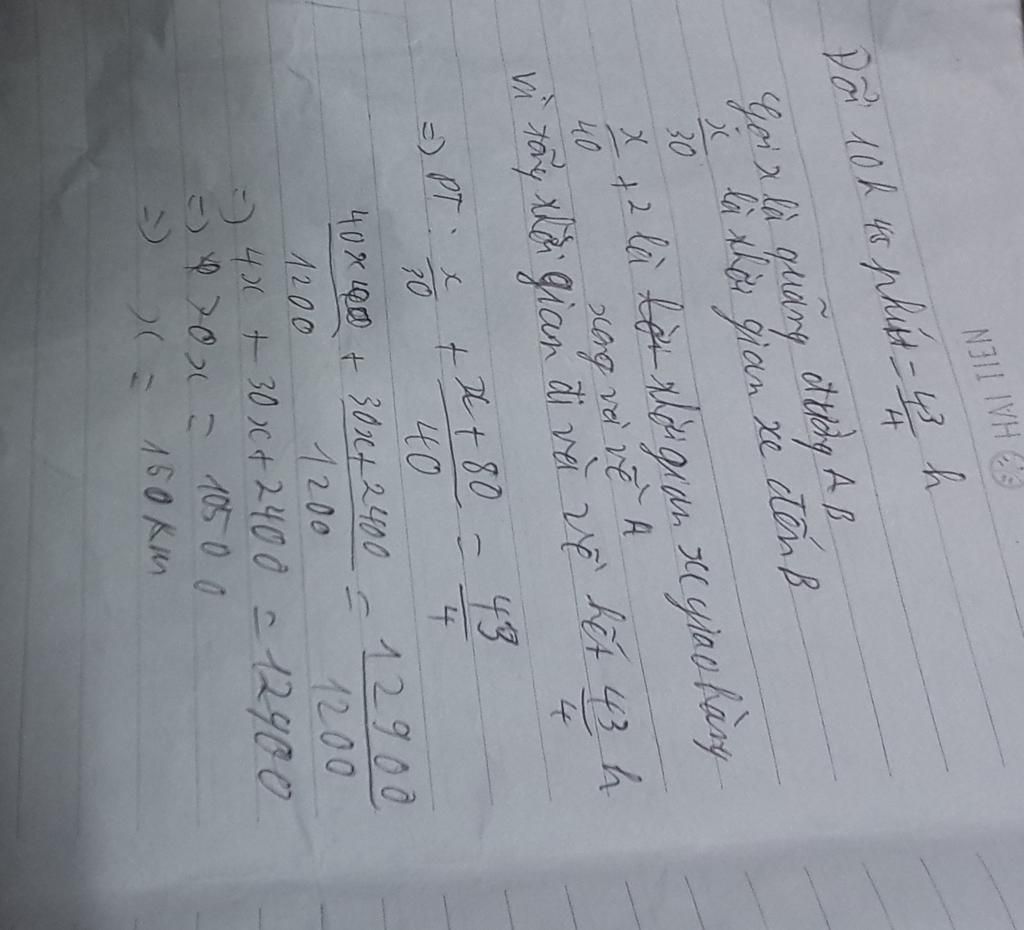 HAI TIEN
Đổi 10h 45 phút = 43/4 h
Gọi x là quãng đường AB
x/30 là thời gian xe đến B
x/40 + 2 là thời gian xe giao hàng
xong và về A
Vì tổng thời gian đi và về hết 43/4 h
=> PT: x/30 + x + 80/40 = 43/4
40x/1200 + 30x + 2400/1200 = 12900/1200
=> 4x + 30x + 2400 = 12900
=> 70x = 10500
=> x = 150 km